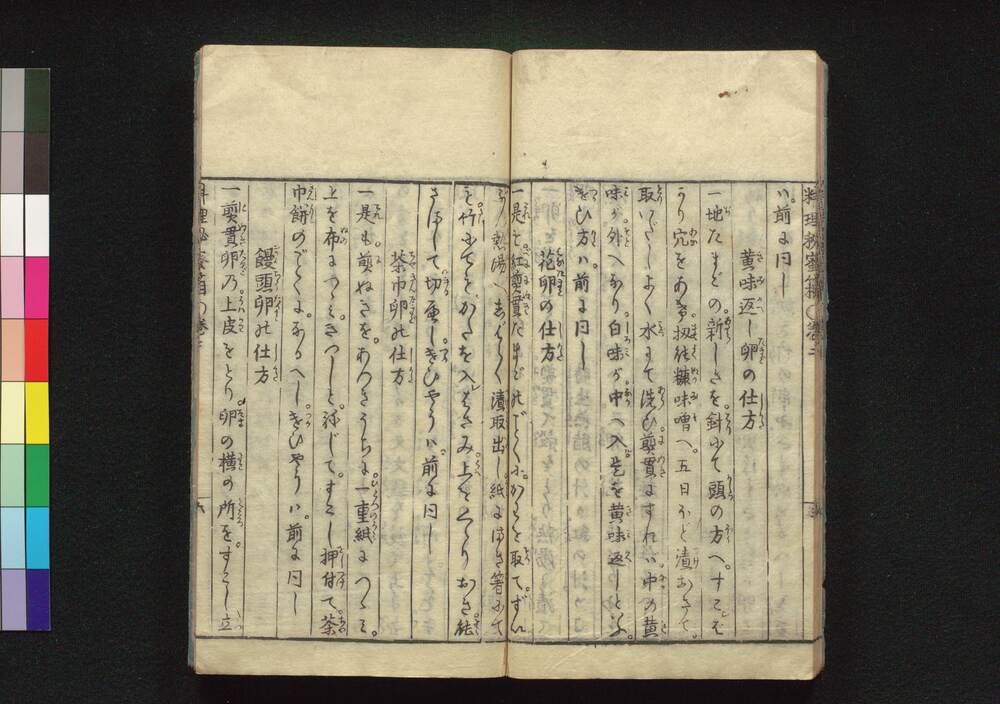 料理秘密箱 巻二
ハ前に同し
黄味返し卵の仕方
一地たまごの新しきを針にて頭の方へ。すこしば
かり穴をあけ扨糠味噌へ。五日ほど漬おきて。
取いだしよく水にて洗ひ煎貫にすれハ中の黄
味が外へなり白味が中へ入是を黄味返しと云。
きひ方ハ前に同し
花卵の仕方
一是も紅煎貫たまごのごとくにからを取て。ずいぶん
熱湯へしばらく漬取出し紙にはさみ箸にて
竹にてをかたを入はさみ上をくゝりおき能
さまして切重しきひやうハ前に同し
茶巾卵仕方
一是も煎ぬきをあつきうちに一重絹につゝミ。
上を布につゝミきつしと。ねじて。すこし押付て。茶
巾餅のごとくになるへしきひやうハ。前に同し
饅頭卵仕方
一煎貫卵乃上皮をとり卵の横の所を。すこし立